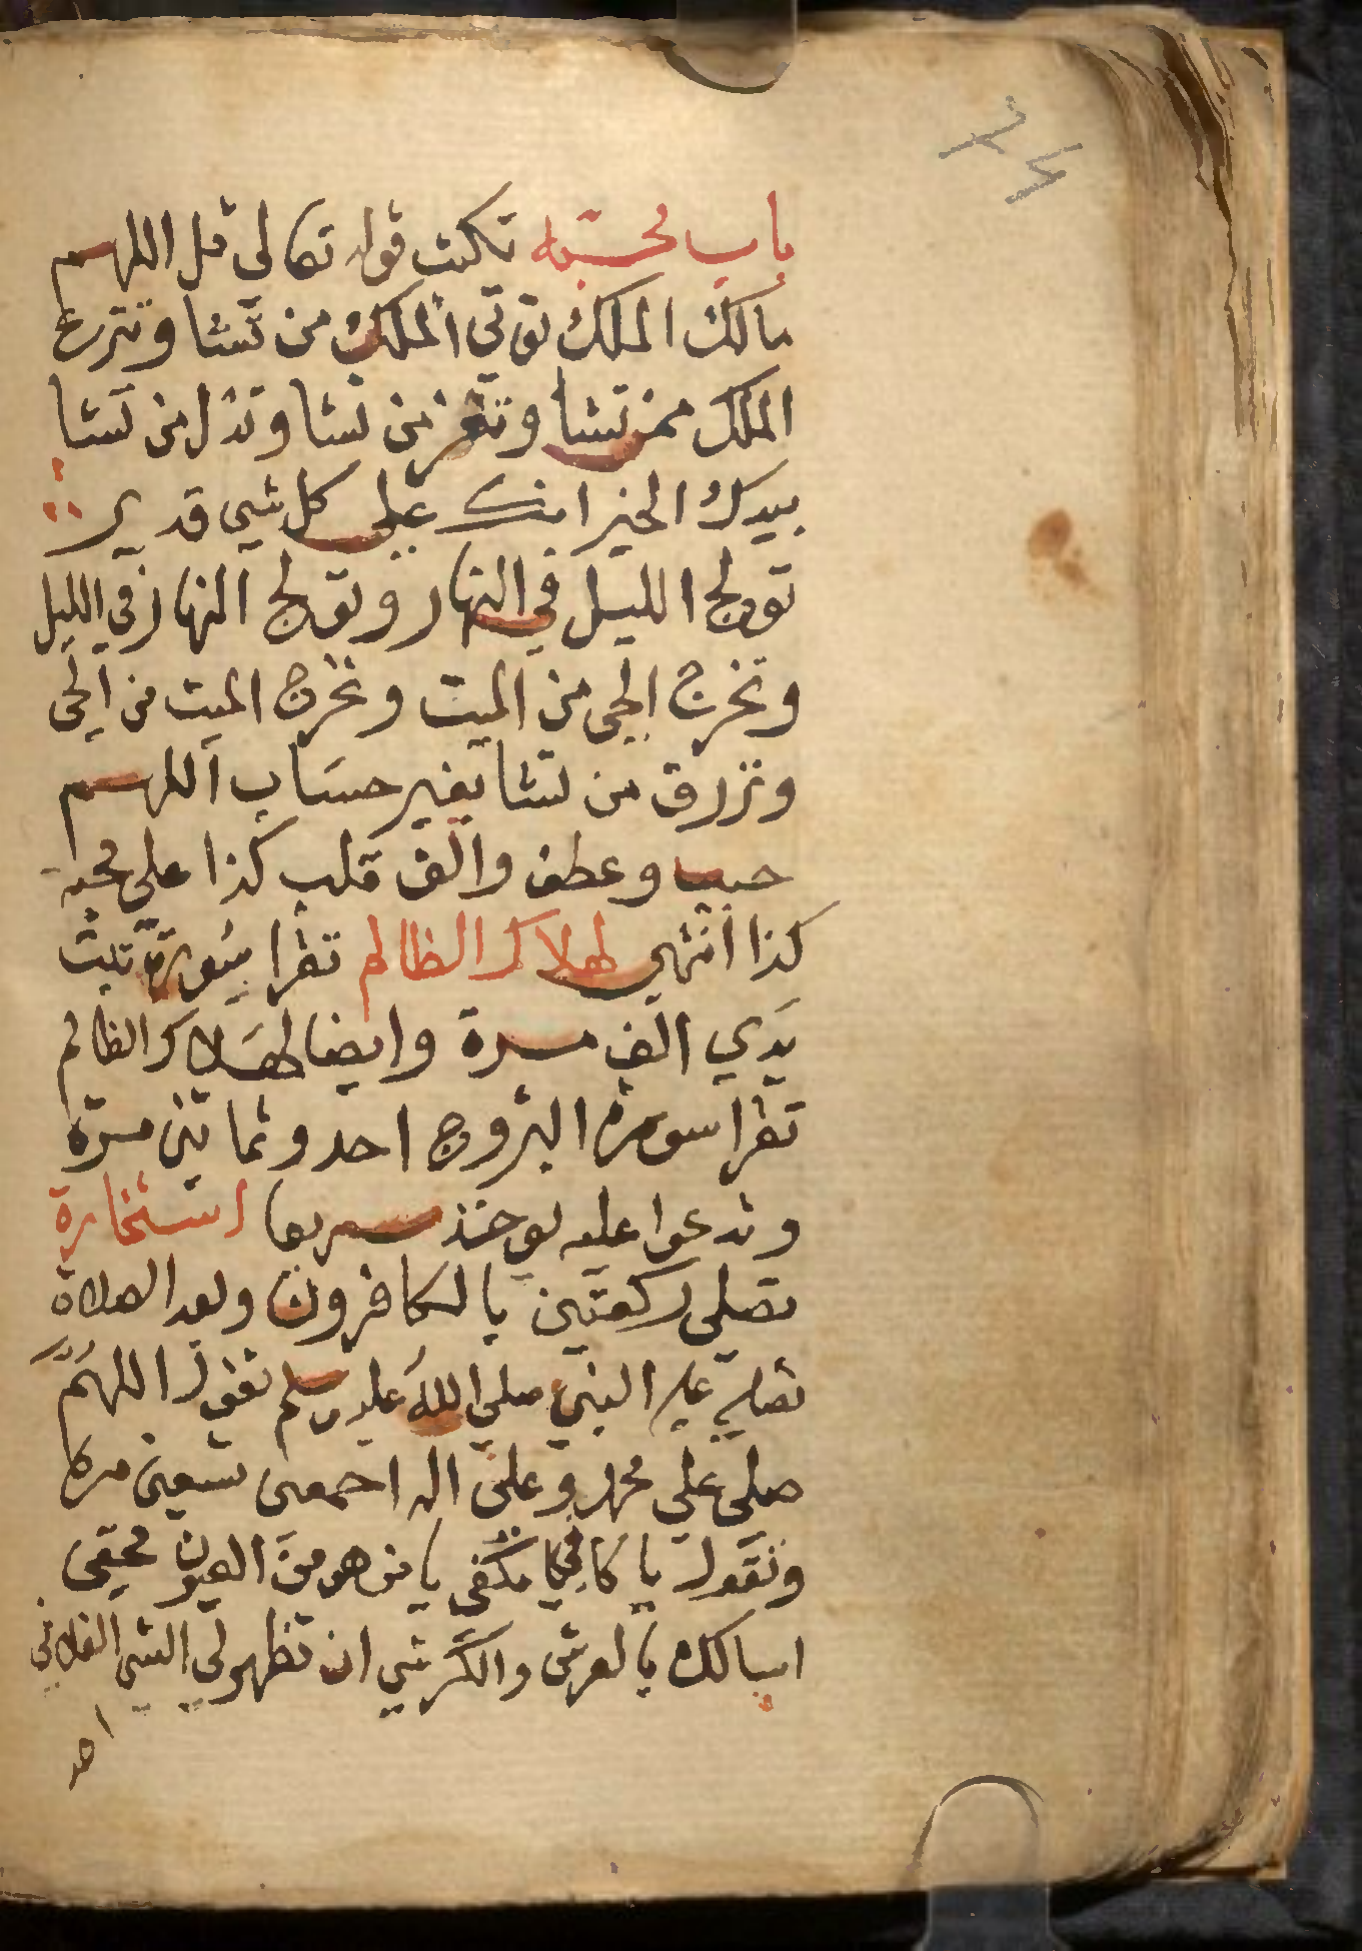 باب محبه تكتب قوله تعالى قل اللهم
مالك الملك توتي الملك من تشا وتنزع
الملك ممن تشا وتعز من تشا وتذل من تشا
بيدك الخير انك علي كل شي قدير
تولج الليل في النهار وتولج النهار في الليل
وتخرج الحي من الميت وتخرج الميت من الحي
وترزق من تشا بغير حساب اللهم
حبب وعطف والف قلب كذا علي محبة
كذا انتهي لهلاك الظالم تقرا سورة تبت
يدي الف مرة وايضا لهلاك الظالم
تقرا سورة البروج احد وثمانين مرة
وتدعوا عليه يوخذ سريعا استخارة
تصلي ركعتين بالكافرون وبعد الصلاة
تصلي علي النبي صلي الله عليه وسلم تقول اللهم
صلي علي محمد وعلى اله اجمعين تسعين مرة
وتقول يا كافي يا مكفي يا من هو من العيون مخفي
اسالك بالعرش والكرسي ان تظهر لي الشي الفلاني